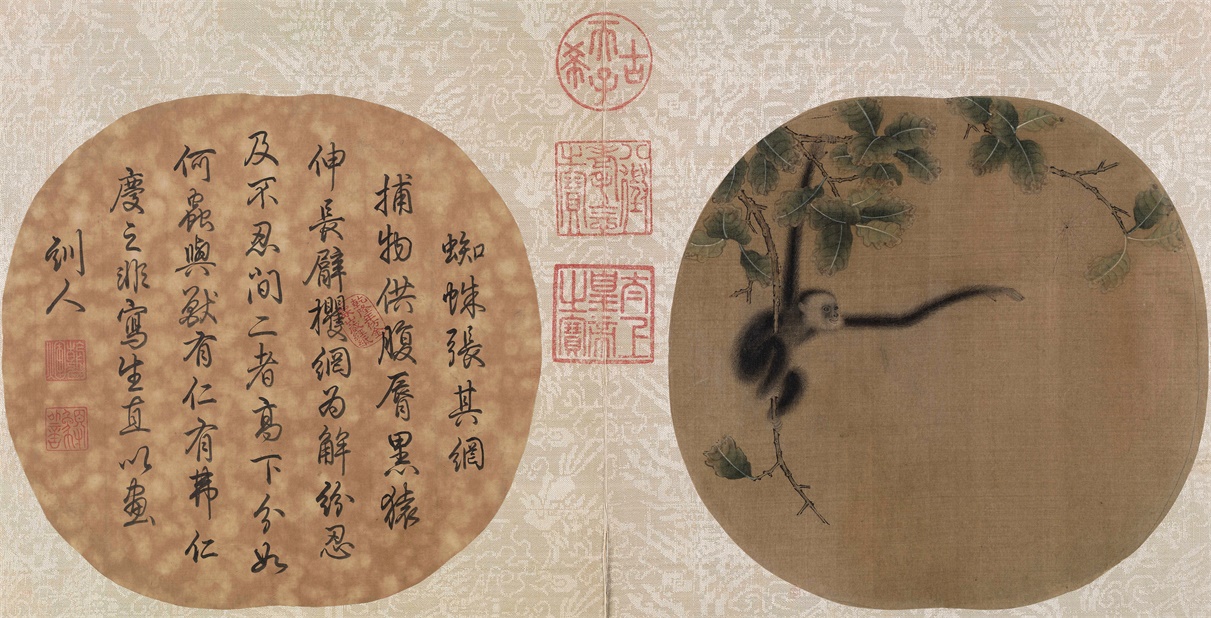 古希天子
八徵耄念之寶
太上皇帝之寶
蜘蛛張其網
捕物供腹脣黑猿
伸長臂攫網為解紛忍
及不忍間二者高下分如
何蟲與獸有仁有弗仁
慶之非寫生直以畫
訓人